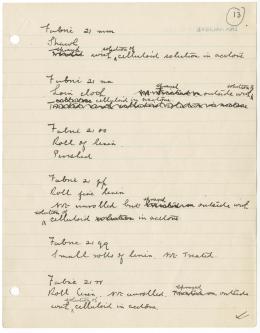 13
Fabric 21 mm
Shawl
sprayed solution of
with celluloid solution in acetone
Fabric 21 nn
Loin cloth sprayed outside with solution of
celluloid in acetone
Fabric 21 oo
Roll of linen.
Perished
Fabric 21 pp
Roll fine linen
Not unrolled but sprayed outside with
solution of celluloid solution in acetone
Fabric 21 qq
Small rolls of linen. Not Treated.
Fabric 21 rr
Roll linen. Not unrolled. sprayed outside
with solution of celluloid in acetone.